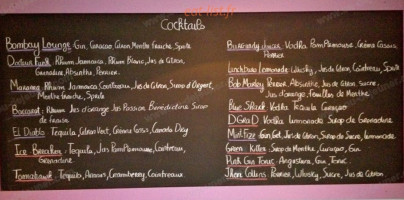 Cocktails
Bombay Lounge Gin, Curacao, Citron, Menthe Fraiche, Sprite
Docteur Funk Rhum Jamaica, Rhum Blanc, Jus de Citron,
Grenadine, Absinthe, Perrier.
Rhum Jamaica, Contreau, Jus de Citron, Sirop d'Orgeat,
Menthe Fraiche,
Baccarat: Rhum, Jus d'orange Jus Passion Bénédictine Sucre
de
El Diablo Tequila, Citron Vert, Crème Cassis, Canada Dry
Ice Breaker: Tequila, Jus Pamplemousse, Cointreau,
Grenadine
Tomahawk: Tequila, Cramberry, Cointreau.
Burgundy Juice Vodka Pamplemousse, Crème Cassis,
Perrier
Lynchburg Lemonade Whisky, Jus de Citron, Cointreau, Sprite
Bob Marley Absinthe, Jus de Citron, Sucre,
Jus d'orange, feuilles de Menthe.
Vodka Tequila Curaçao
Vodka Limonade Sirop de Grenadine
Gin Get, Jus de Citron, Sirop de Sucre, Limonade
Green Killer: Sirop de Menthe, Curaçao, Gin
Pink Gin Tonic: Angostura, Gin, Tonic.
Collins Perrier, Whisky, Sucre, Jus de Citron